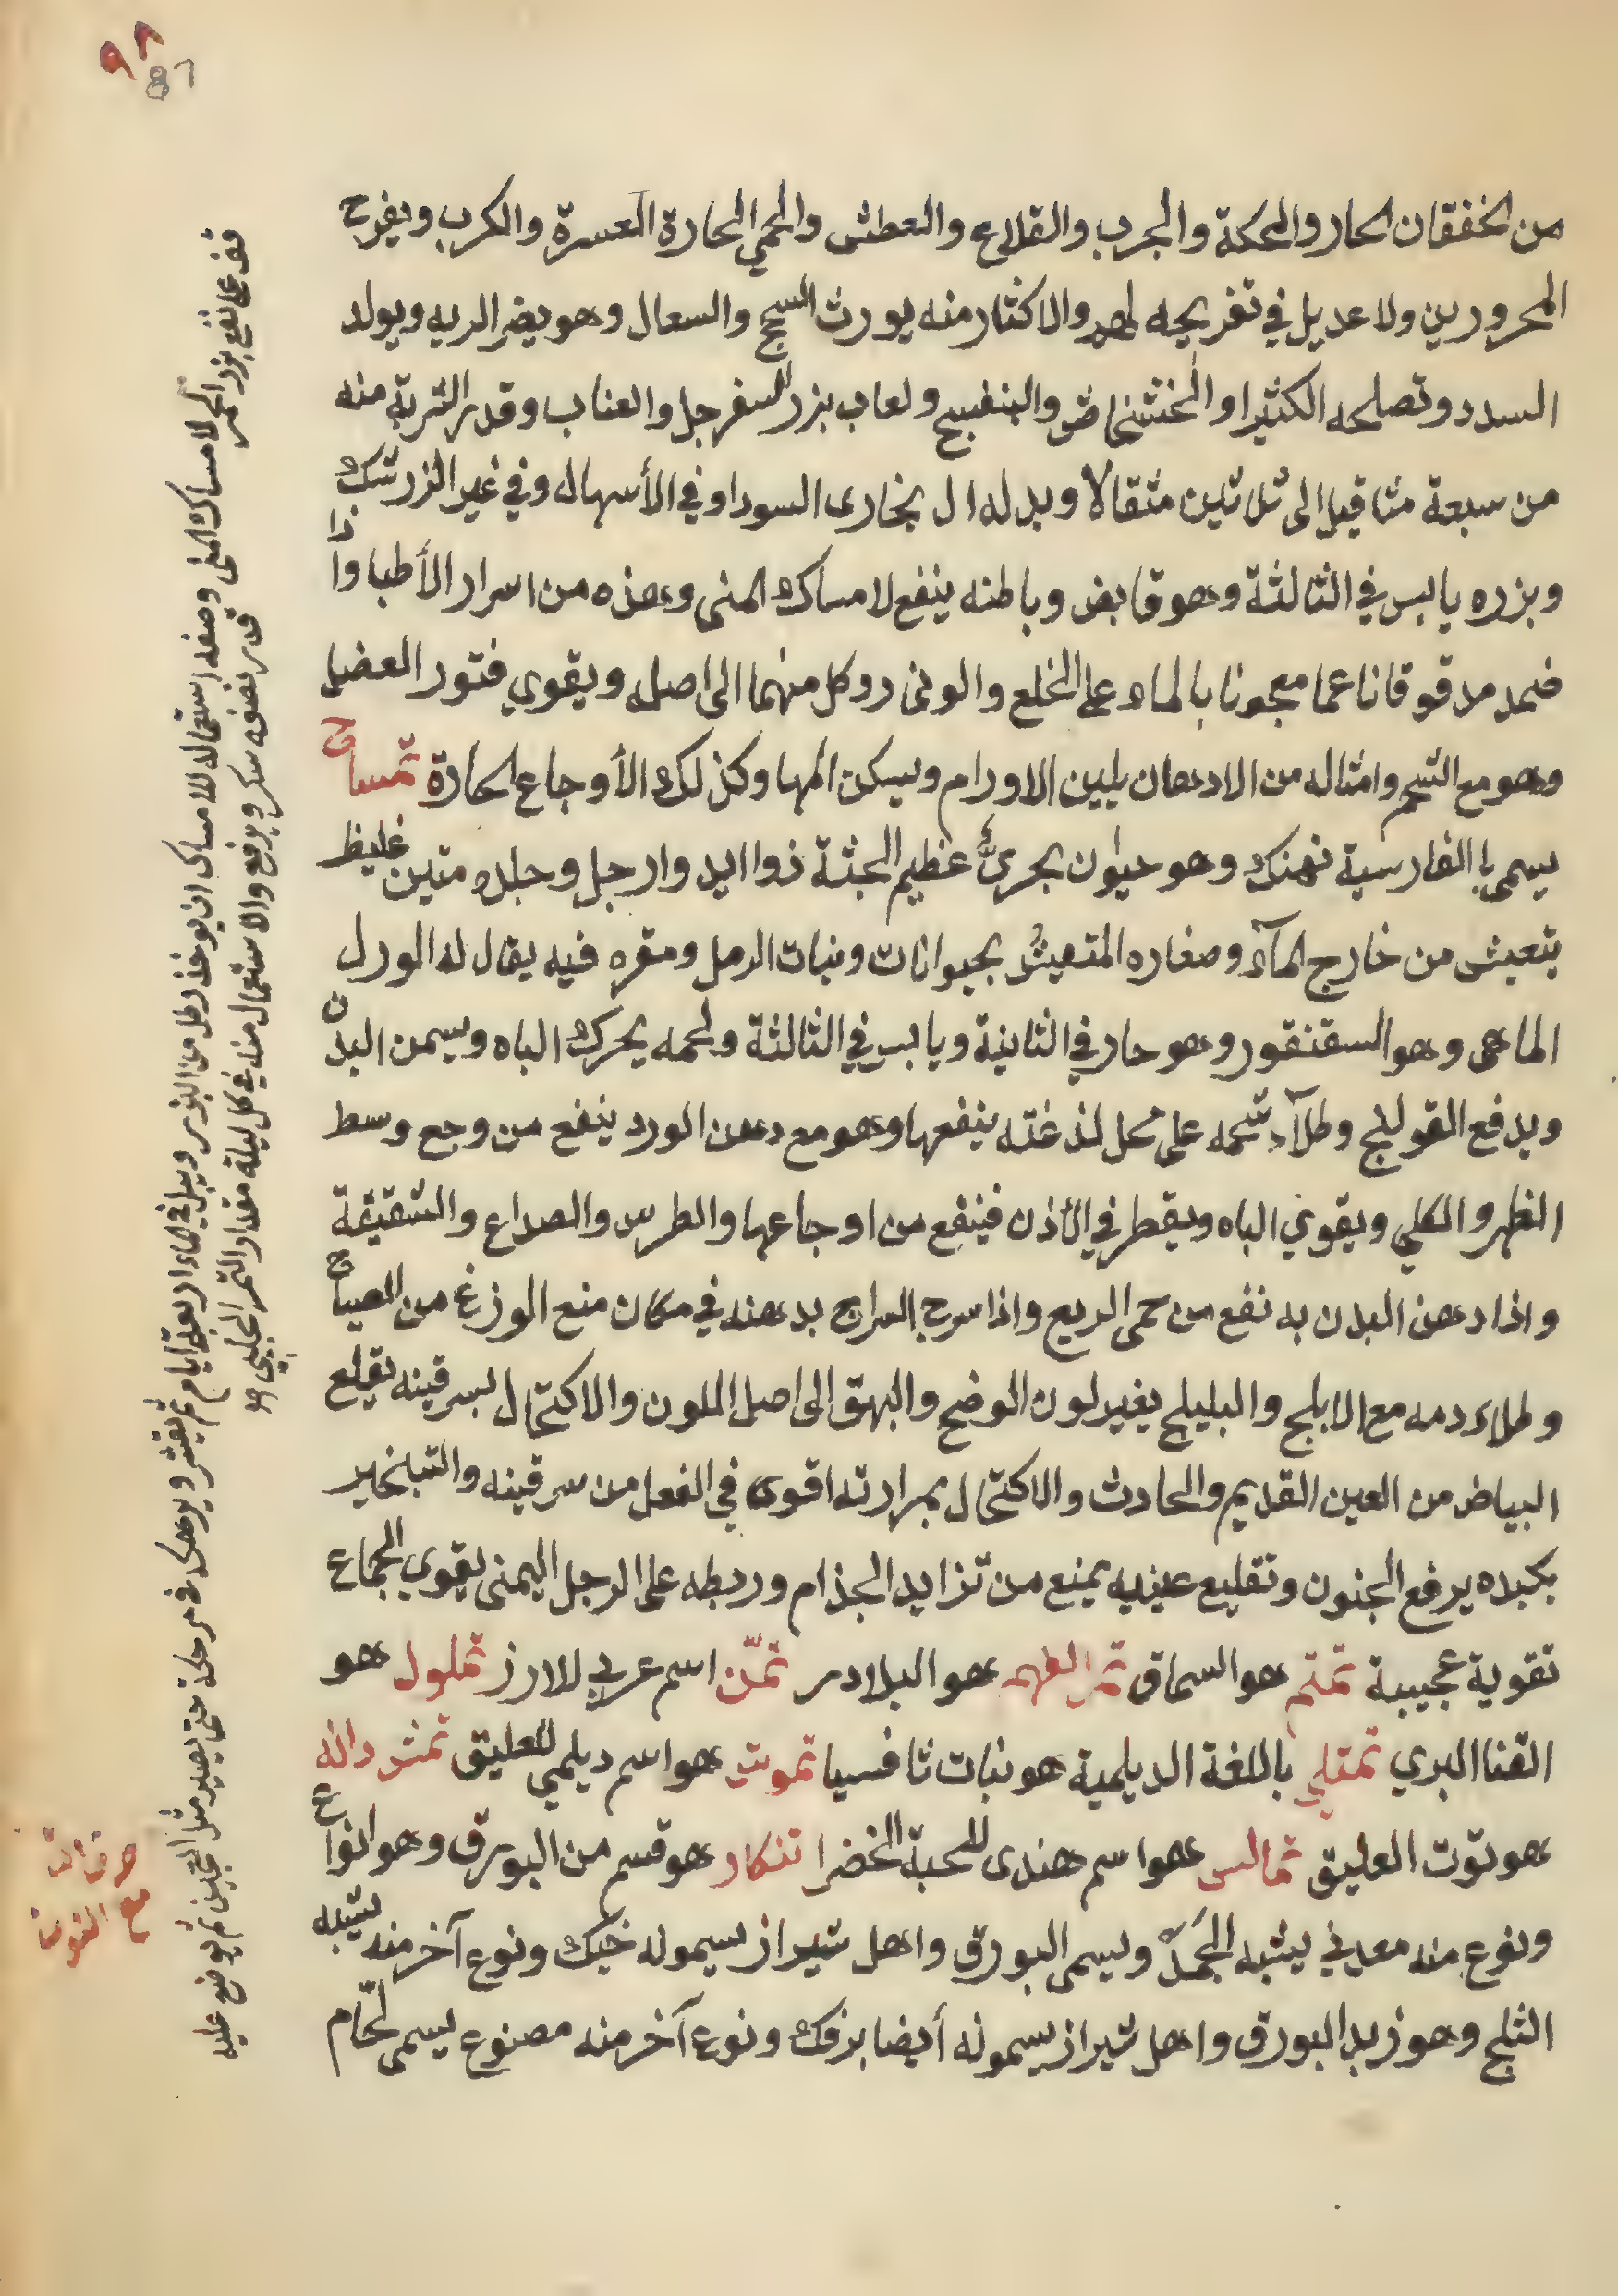 ٩٨
من الخفقان الحار والحكة والجرب والقلاع والعطش والحمي الحارة العسرة والكرب ويفرح
المحرورين ولا عديل في تفريحه لهم والاكثار منه يورث السحج والسعال وهو يضر الريه ويولد
السدد وتصلحه الكثيرا والخشخاش والبنفسج ولعاب بزر السفرجل والعناب وقدر الشربة منه
من سبعة مثاقيل الى ثلاثين مثقالا وبدله ال بخارى السودا وفي الأسهال وفي غير الزرشك
وبزره يابس في الثالثة وهو قابض وباطنه ينفع لامساك المنى وهذه من اسرار الأطبا واذا
ضمد مدقوقا ناعما معجونا بالماء على الخلع والوثى رد كل منهما الى اصله ويقوي فتور العضل
وهو مع الشحم وامثاله من الادهان يلين الاورام ويسكن المها وكذلك الأوجاع الحارة تمساح
يسمى با الفارسية نهنك وهو حيوٰن بحرىٌّ عظيم الجثة ذوا ايد وارجل وجلده متين غليظ
يتعيش من خارج المآء وصغاره المتعيشُ بحيوانات ونبات الرمل ومقره فيه يقال له الورل
الماهى وهو السقنقور وهو حار في الثانية ويابس في الثالثة ولحمه يحرك الباه ويسمن البدن
ويدفع القولنج وطلآء شحمه على محل لذغته ينفعها وهو مع دهن الورد ينفع من وجع وسط
الظهر والكلي ويقوي الباه ويقطر في الأذن فينفع من اوجاعها والطرس والصداع والشقيقة
واذا دهن البدن به نفع من حمى الربع واذا سرج السراج بدهنه في مكان منع الوزغ من الصياح
وطلاء دمه مع الابلج والبليلج يغير لون الوضح والبهق الى اصل اللون والاكتحال بسرقينه يقلع
البياض من العين القديم والحادث والاكتحال بمرارته اقوى في الفعل من سرقينه والتبخير
بكبده يرفع الجنون وتقليع عينيه يمنع من تزايد الجذام وربطه على الرجل اليمنى يقوي الجماع
تقوية عجيبة تمتم هو السماق تمر الفهم هو البلادر تمّن اسم عربي للارز تملول هو
القنا البري تمتلي باللغة الديلمية هو نبات ثافسيا تموش هو اسم ديلمي للعليق تمش دانه
هو توت العليق تمالس هو اسم هندى للحبة الخضرا تنكار هو قسم من البورق وهو انواع
ونوع منه معدني يشبه الجَمدّ ويسمى البورق واهل شيراز يسمونه خبك ونوع آخر منه يشبه
الثلج وهو زبد البورق واهل شيراز يسمونه أيضا بزفك ونوع آخر منه مصنوع يسمى لحّام
قف على نفع بزر الحمر لامساك المنى وصفه استعماله للامساك ان يوخذ رطل من البزر ويبل في الماء اربعة ايام ثم يقشر ويرهك في مرحكة حتى يصير مثل العجين ثم يوضع عليه
قدر نصفه سكر ويرفع والاستعمال منه في كل ليلة مقدار التمر الحلبي اھ
حرف التا
مع النون